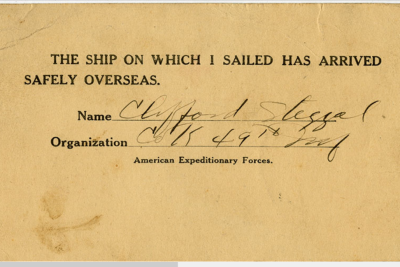 THE SHIP ON WHICH I SAILED HAS ARRIVED
SAFELY OVERSEAS.
Name Clifford Stegal
Organization Co K 49th Inf
American Expeditionary Forces.